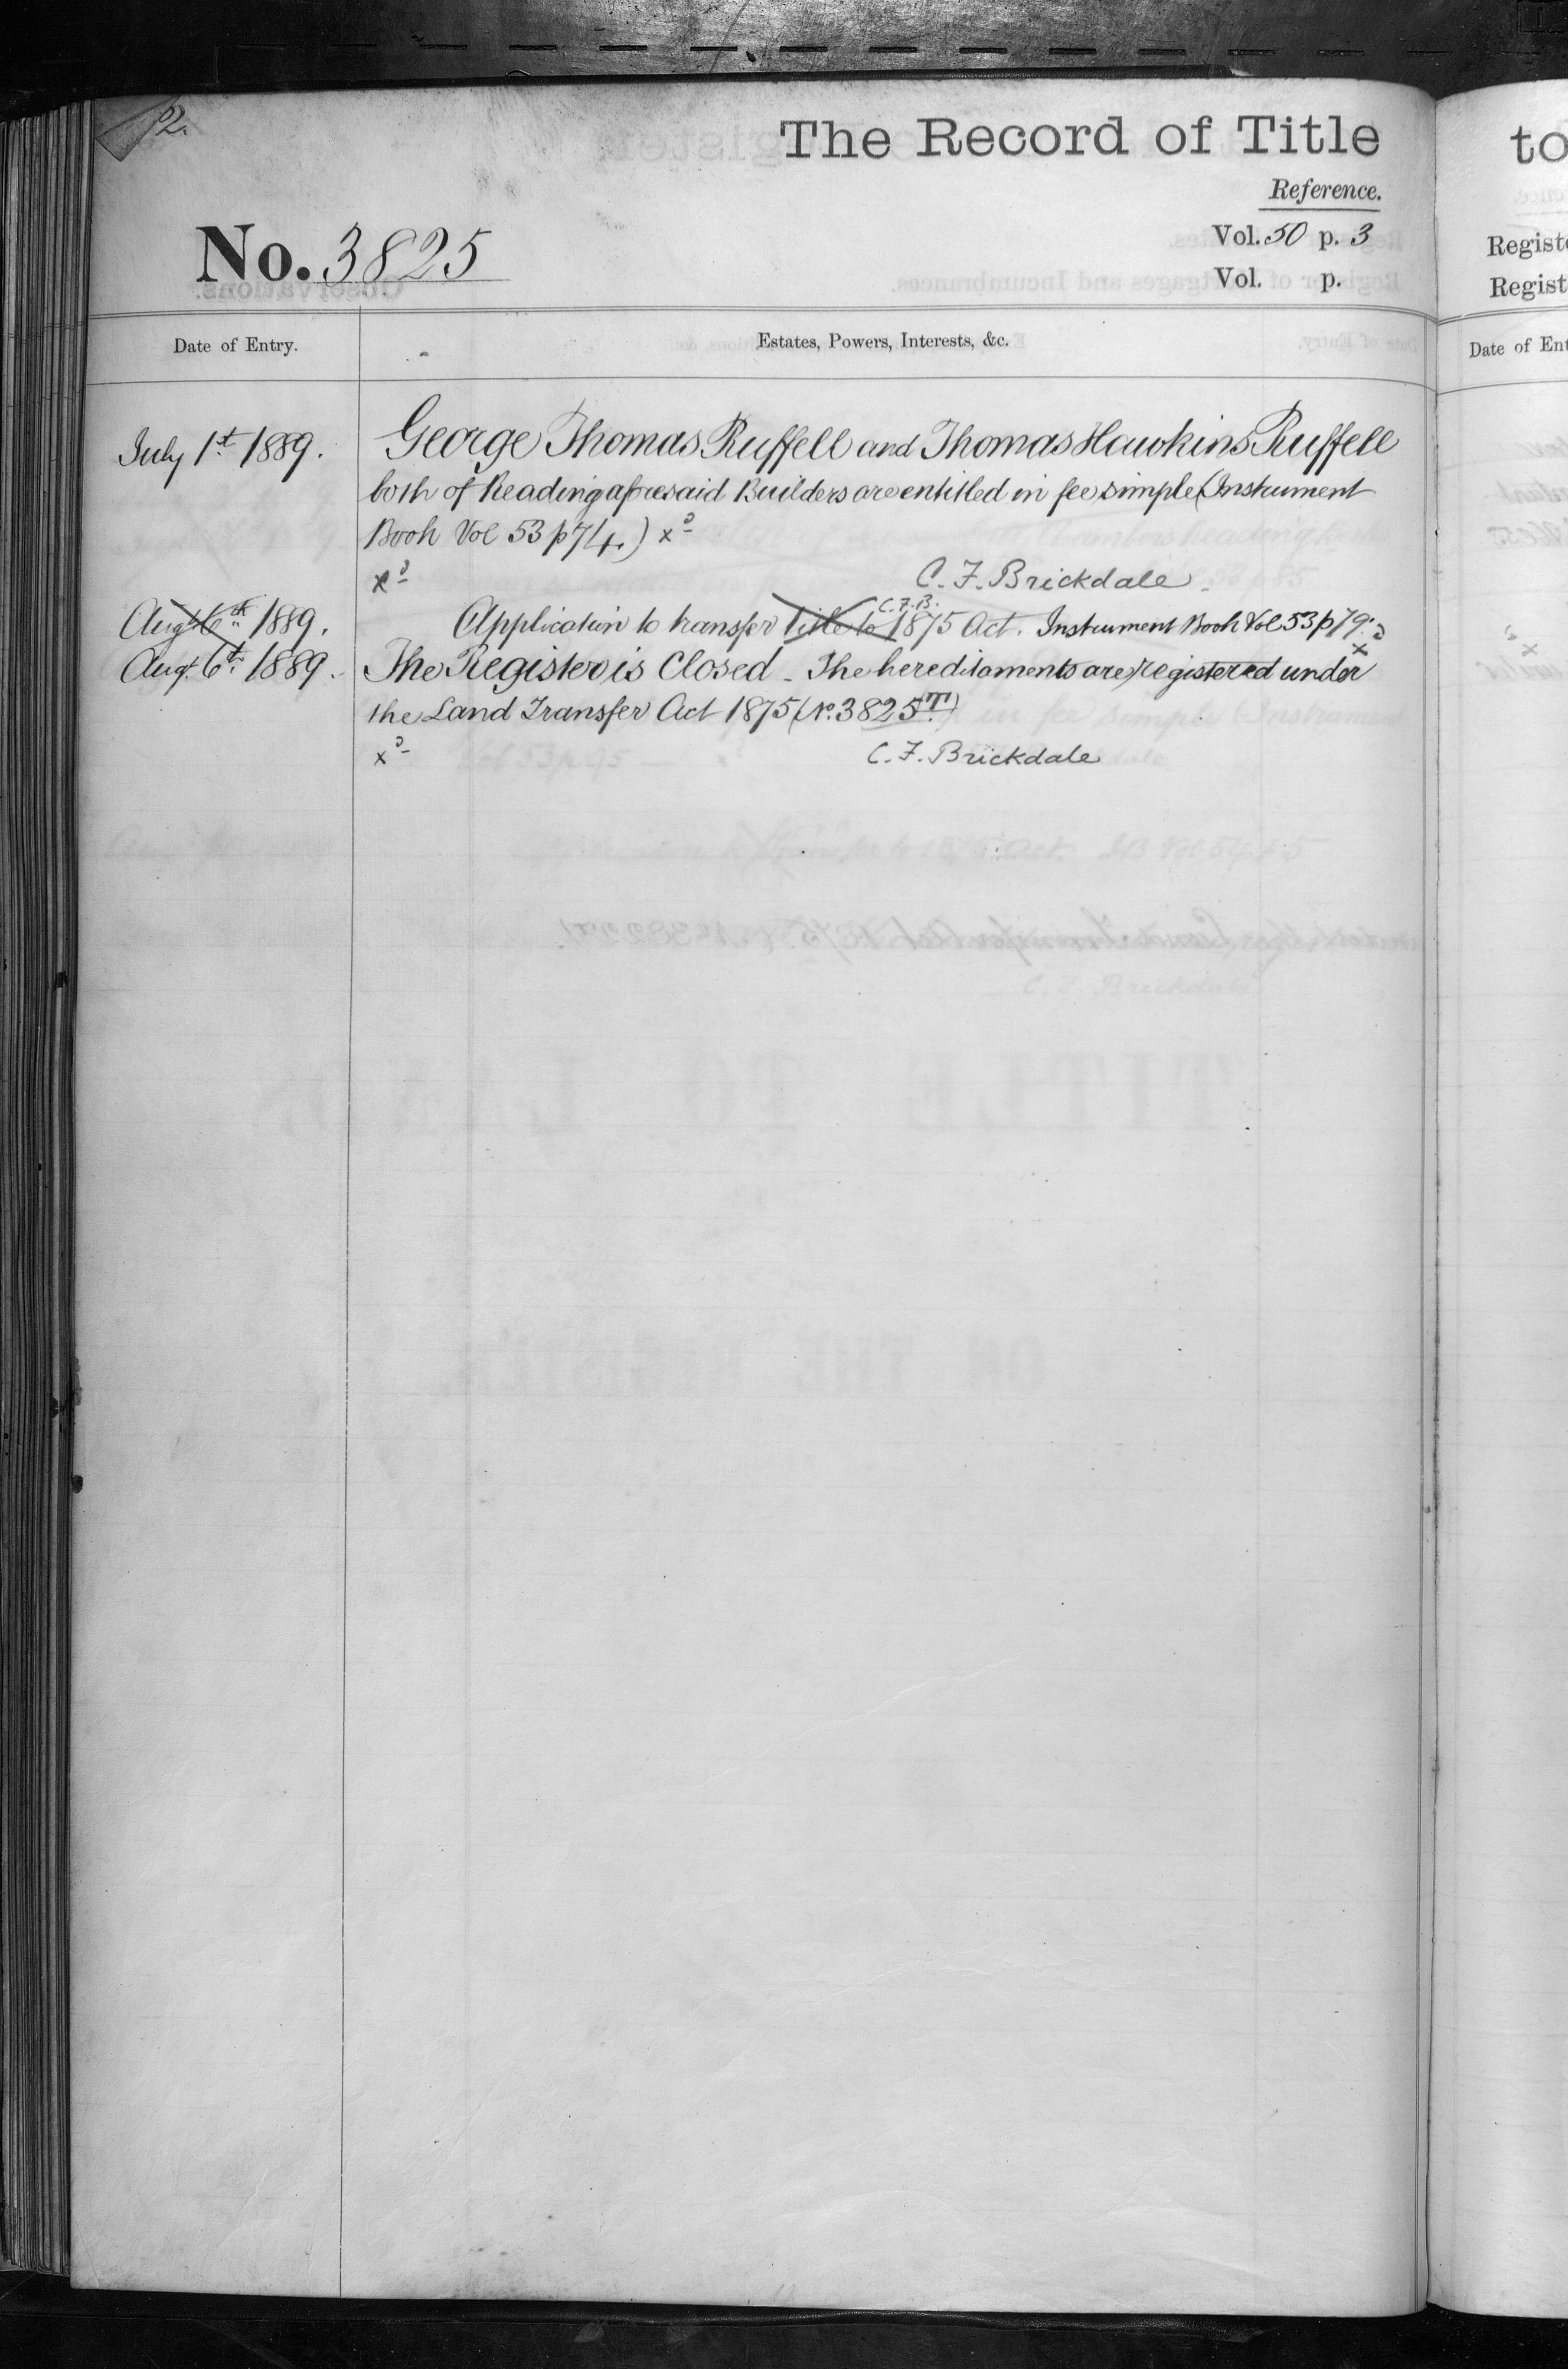 2.
The Record of Title
Reference.
No. 3825
Vol. 50 p. 3
Vol. p.
Date of Entry.
Estates, Powers, Interests, &c.
July 1st 1889.
George Thomas Ruffell and Thomas Hawkins Ruffell
both of Reading aforesaid Builders are entitled in fee simple (Instrument
Book Vol 53 p 74.) x
x
C. F. Brickdale
C.F.B.
Augt 6th 1889.
Application to transfer title to 1875 Act. Instrument Book Vol 53 p 79.
x
Augt 6th 1889.
The Register is Closed - The hereditaments are registered under
the Land Transfer Act 1875 (No. 3825T)
x
C. F. Brickdale
to
Regist
Regist
Date of Ent